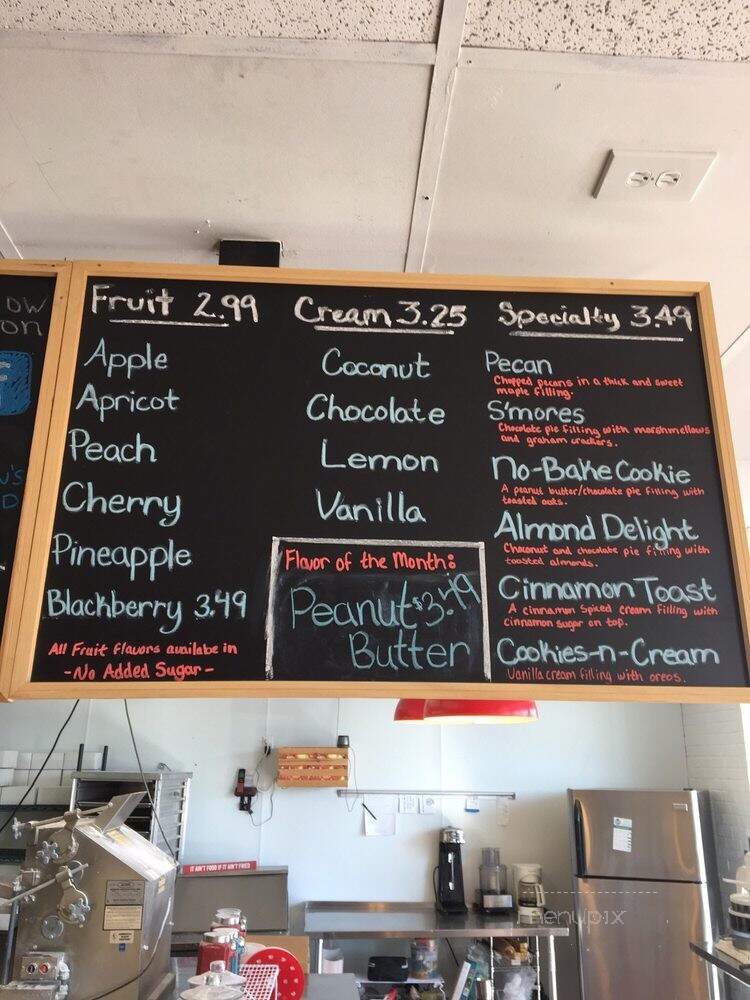 OW
ON
Fruit 2.99
Apple
Apricot
Peach
Cherry
Pineapple
Blackberry 3.49
All Fruit flavors availabe in
-No Added Sugar-
Cream 3.25
Coconut
Chocolate
Lemon
Vanilla
Flavor of the Month:
Peanut $3.49
Butter
Specialty 3.49
Pecan
Chopped pecans in a thick and sweet
maple filling.
S'mores
Chocolate pie filling with marshmellows
and graham crackers.
No-Bake Cookie
A peanut butter/chocolate pie filling with
toasted oats.
Almond Delight
and chocolate pie filling with
toasted almonds.
Cinnamon Toast
A cinnamon spiced cream filling with
cinnamon sugar on top.
Cookies-n-Cream
Vanilla cream filling with oreos.
IT AIN'T FOOD IF IT AIN'T FRIED
menupix